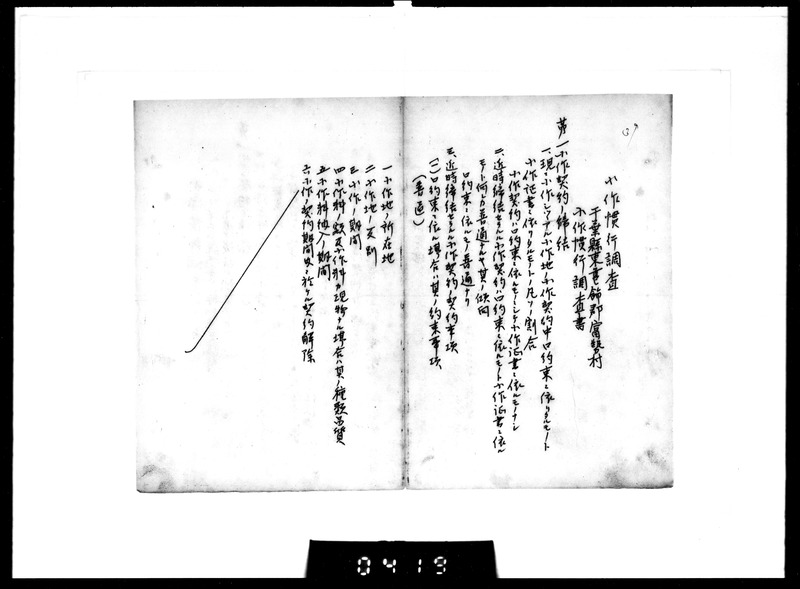 小作慣行調査
千葉縣東葛飾郡富勢村
小作慣行調査書
第一 小作契約ノ締結
一、現ニ小作シアル小作地ノ小作契約中口約束ニ依リタルモノト
小作証書ニ依リタルモノトノ凡ソノ割合
小作契約ハ口約束ニ依ルモノニシテ小作証書ニ依ルモノナシ
二、近時締結セラルル小作契約ハ口約束ニ依ルモノト小作証書ニ依ル
モノト何レカ普通ナルヤ其ノ傾向
口約束ニ依ルモノ普通ナリ
三、近時締結セラルル小作契約ノ契約事項
(一)口約束ニ依ル場合ハ其ノ約束事項
(普通)
一 小作地ノ所在地
二 小作地ノ反別
三 小作ノ期間
四 小作料ノ額及小作料ガ現物ナル場合ハ其ノ種類品質
五 小作料納入ノ期間
六 小作ノ契約期間内ニ於ケル契約解除
0419